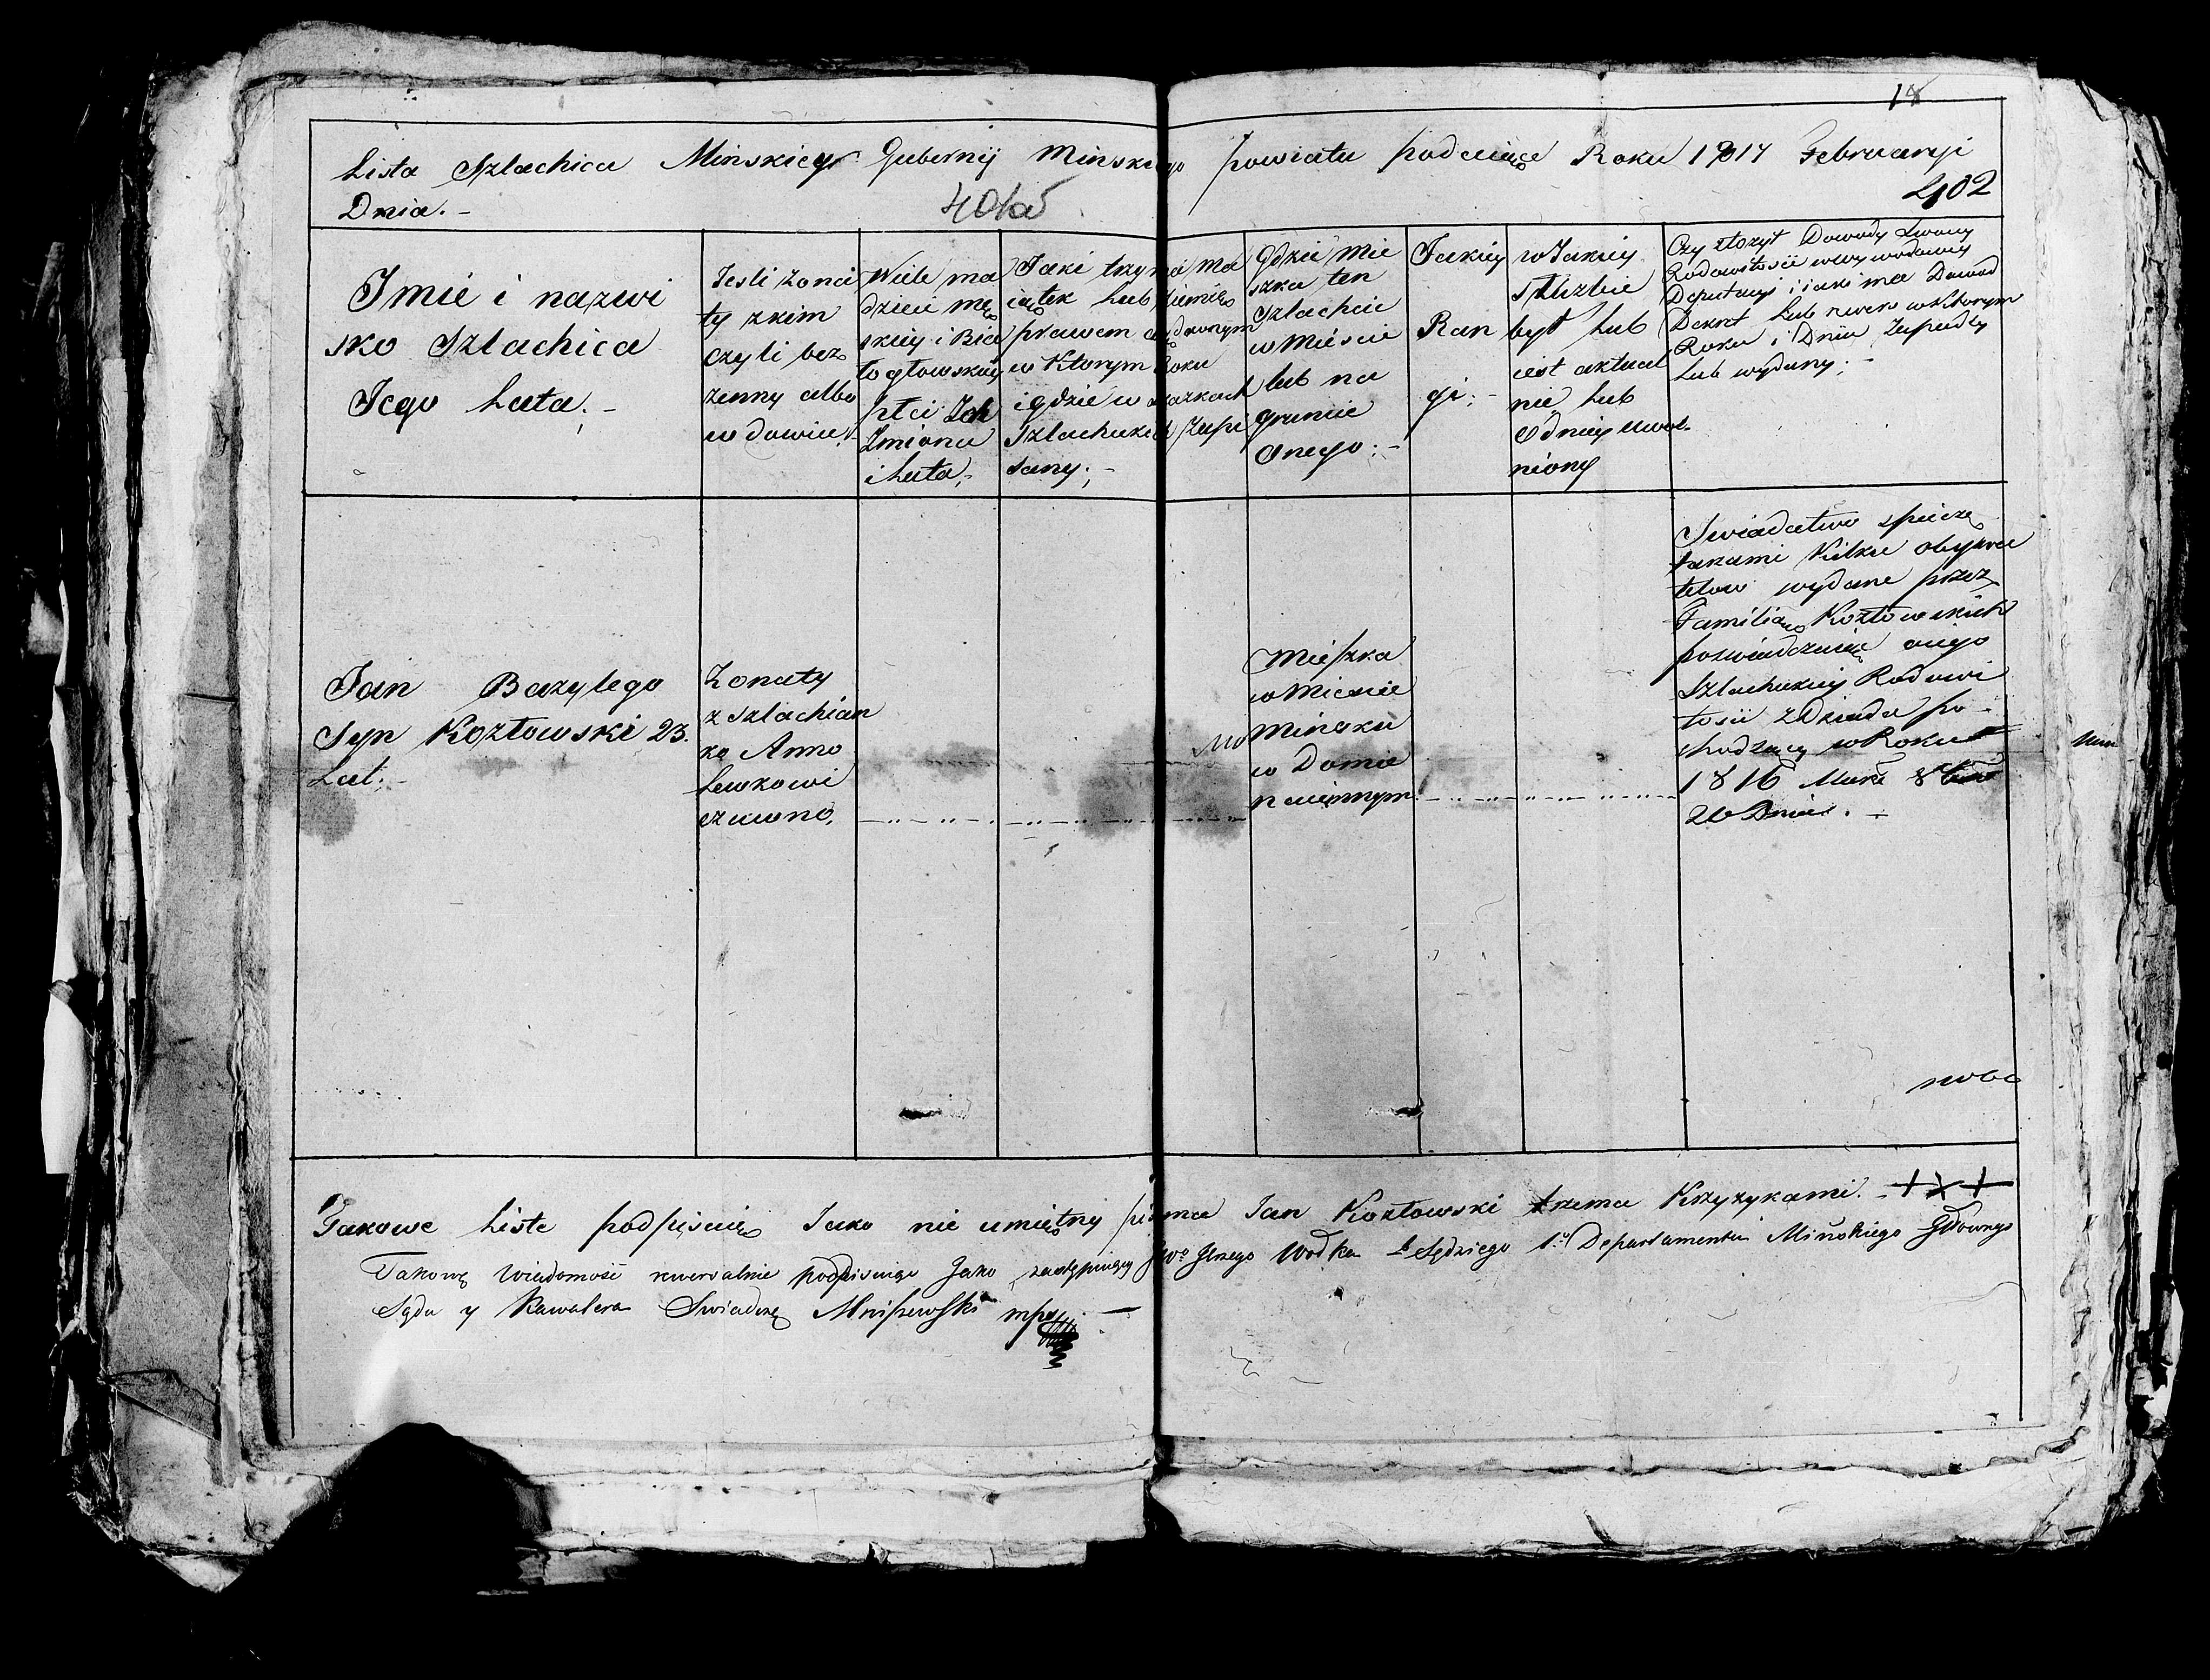 18
Lista Szlachica Minskiey Gubernij Minskiego powiatu podaiąca Roku 1817 Februaryi
402
Dnia. -
Imie i nazwi
sko Szlachica
Jego Lata; -
Jesli żona
ty zkim
czyli bez
żenny albo
wdowiec
Wiele ma
dzieci mę
skiey i Bia
łogłowskiey
płci Ich
Imiona
i Lata; -
Jaki trzyma ma
iątek Lub ziemię
prawem
w Ktorym Roku
i gdzie w skazkach
Szlacheckich zapi
sany; -
Gdzie Mie
szka ten
Szlachcic
w Miescie
lub na
gruncie
onego; -
Jakiey
Ran
gi; -
w Jakiey
służbie
był lub
iest aktual
nie Lub
Odniey uwol
niony
Czy złożył Dowody swoiey
Rodowitosci wwywodowey
Deputacyi i iaki ma Dowod
Dekret Lub rewers w Ktorym
Roku i Dniu zapadły
Lub wydany; -
Jan Bazylego
Syn Kozłowski 23.
Lat; -
Żonaty
z szlachian
ką Anną
Lewkowi
czuwną,
Mieszka
w Miescie
Minsku
w Domie
naiemnym
Swiadectwo spieczę
takami Kilku obywa
telow wydane przez
Familią Kozłowskich
poswiadczaiące onego
Szlacheckiey Rodowi
tosci z Dziada po-
chodzący w Roku
1816 Marca
20 Dnia. -
Takowe Liste podpisuię Jako nie umiętny pisma Jan Kozłowski trzema Krzyzykami. - + x +
Takowę wiadomość rewersalnie podpisuiąc Jako zastępuiący Departamentu Mińskiego Głownego
Sądu y Kawalera Swiadczę Mniszewski mpa -